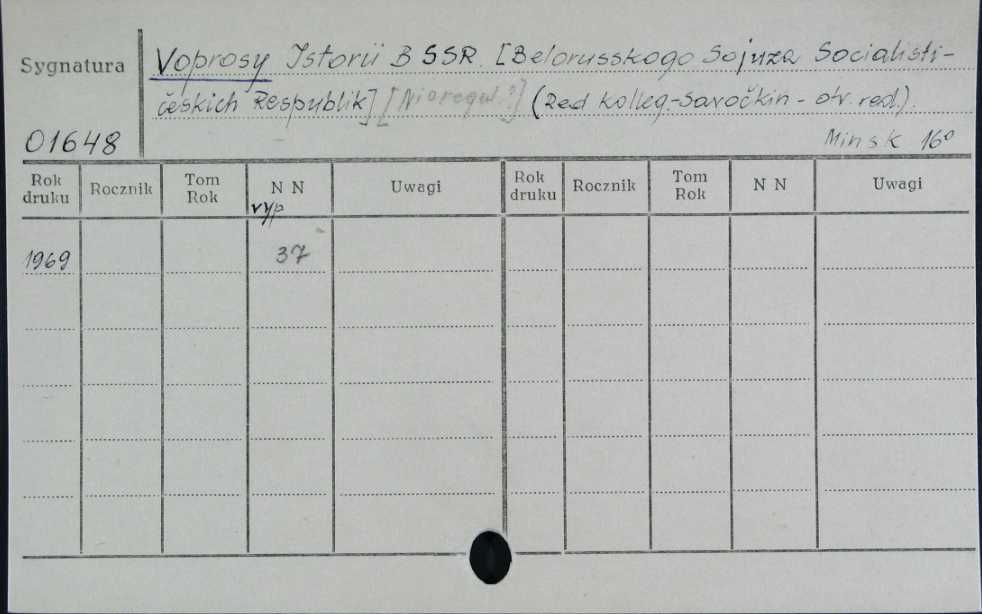 Sygnatura
Voprosy Istorii BSSR. [Belorusskogo Sojuza Socialisti-
českich Respublik] [Nieregul.?] (Red kolleg.-Savočkin - otv. red.).
01648
Minsk 16°
Rok druku Rocznik Tom Rok N N Uwagi Rok druku Rocznik Tom Rok N N Uwagi
vyp
1969 37